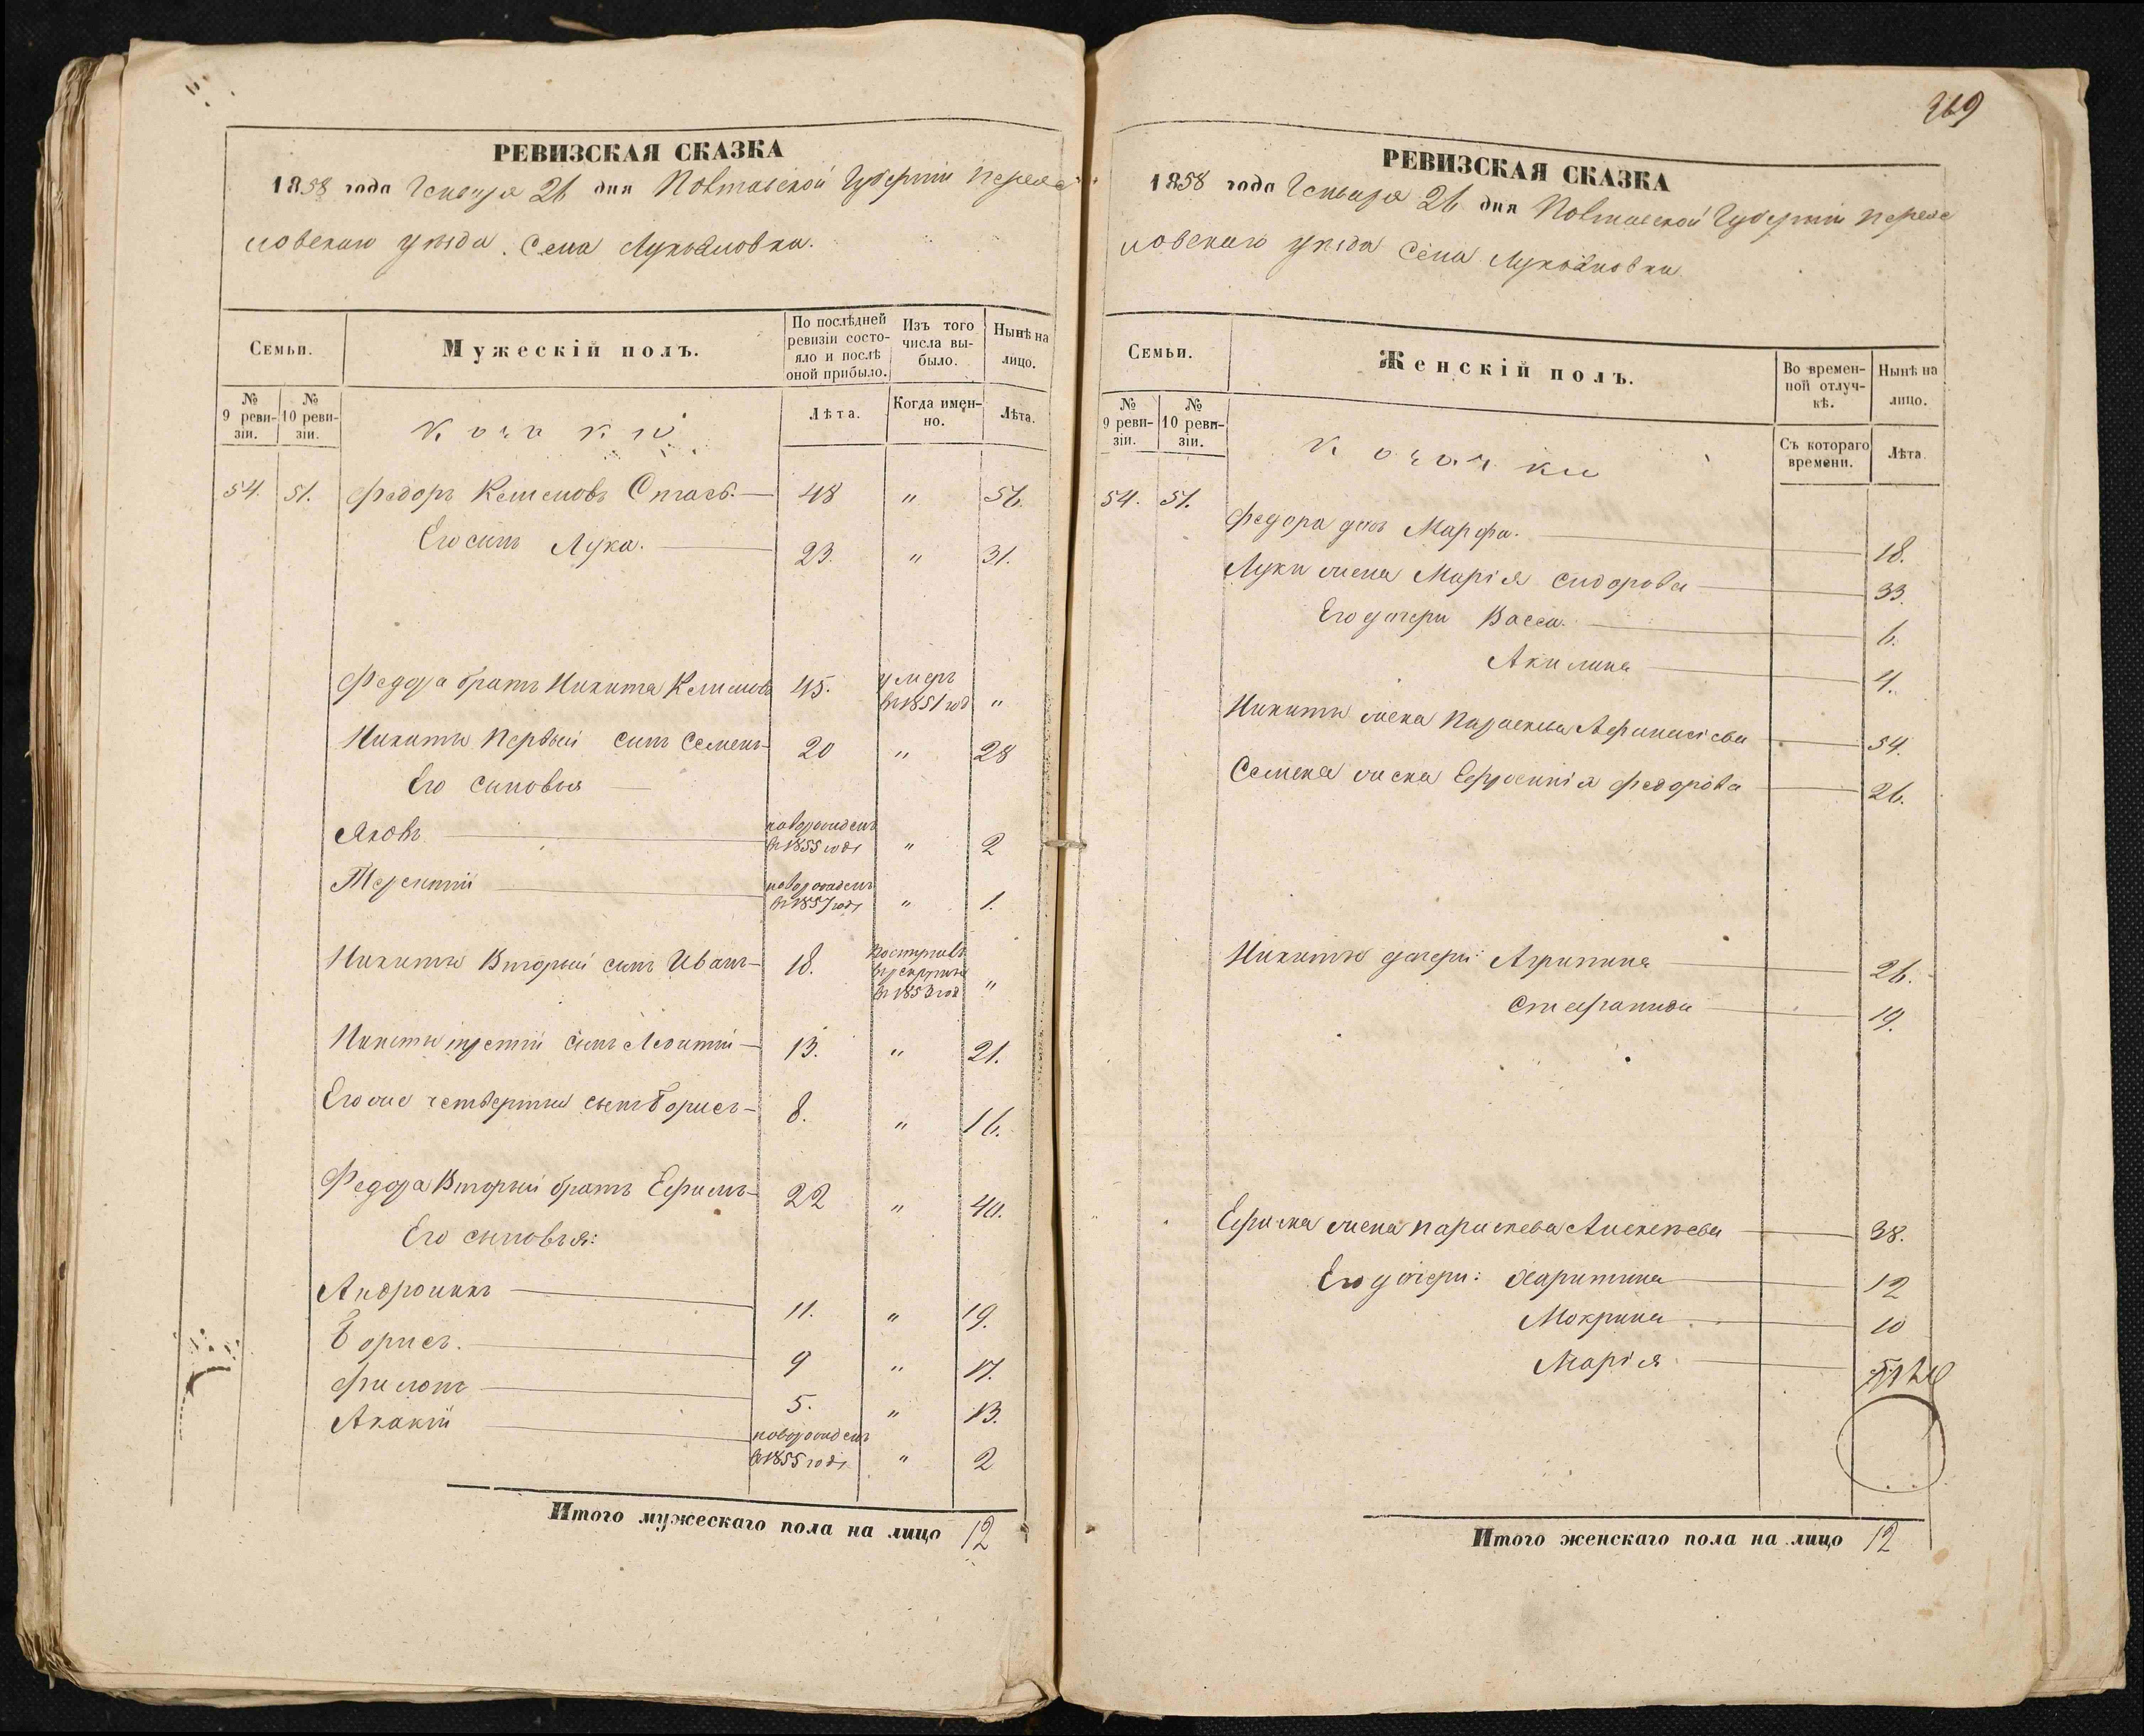 369
РЕВИЗСКАЯ СКАЗКА
1858 года Генваря 26 дня Полтавской Губерніи Переяс
ловскаго уѣзда. Села Лукьяновки.
Семьи.
Мужескій полъ.
По послѣдней ревизіи состояло и послѣ оной прибыло.
Изъ того числа выбыло.
Нынѣ на лицо.
№ 9 ревизіи.
№ 10 ревизіи.
Козаки
Лѣта.
Когда именно.
Лѣта.
54. 51. Федоръ Климовъ 48 " 56.
Его сынъ Лука. 23. " 31.
Федора братъ Никита Климовъ 45. умеръ въ 1851 год "
Никиты Первый сынъ Семенъ 20 " 28
Его сыновья
Яковъ новорожденъ въ 1855 годѣ " 2
Терентій новорожденъ въ 1857 годѣ " 1.
Никиты Вторый сынъ Иванъ 18. поступивъ въ рекруты въ 1853 год "
Никиты третій сынъ Леонтій 13. " 21.
Его же четвертый сынъ Борисъ 8. " 16.
Федора Вторый братъ Ефимъ 22 " 40.
Его сыновья:
Андроникъ 11. " 19.
Борисъ. 9 " 17.
Филонъ 5. " 13.
Акакій новорожденъ въ 1855 годѣ " 2
Итого мужескаго пола на лицо 12
РЕВИЗСКАЯ СКАЗКА
1858 года Генваря 26 дня Полтавской Губерніи Переяс
ловскаго уѣзда Села Лукьяновки
Семьи.
Женскій полъ.
Во временной отлучкѣ.
Нынѣ на лицо.
№ 9 ревизіи.
№ 10 ревизіи.
Козачки
Съ котораго времени.
Лѣта.
54. 51.
Федора дочь Марфа. 18.
Луки жена Марія Сидорова 33.
Его дочери Васса. 6.
Акилина 4.
Никиты жена Параскева Афанасіева 54.
Семена жена Ефросинія Федорова 26.
Никиты дочери: Агрипина 26.
Стефанида 19.
Ефима жена Параскева Алексѣева 38.
Его дочери: Харитина 12
Мокрина 10
Марія
Итого женскаго пола на лицо 12